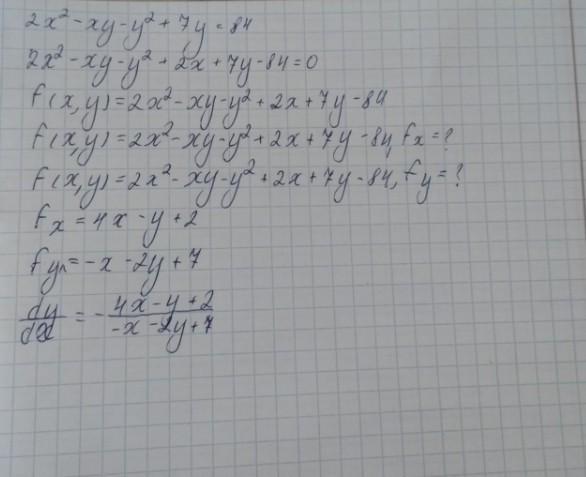 2x² - xy - y² + 7y = 84
2x² - xy - y² + 2x + 7y - 84 = 0
f(x,y) = 2x² - xy - y² + 2x + 7y - 84
f(x,y) = 2x² - xy - y² + 2x + 7y - 84, fx = ?
f(x,y) = 2x² - xy - y² + 2x + 7y - 84, fy = ?
fx = 4x - y + 2
fy = -x - 2y + 7
dy/dx = - (4x - y + 2)/(-x - 2y + 7)